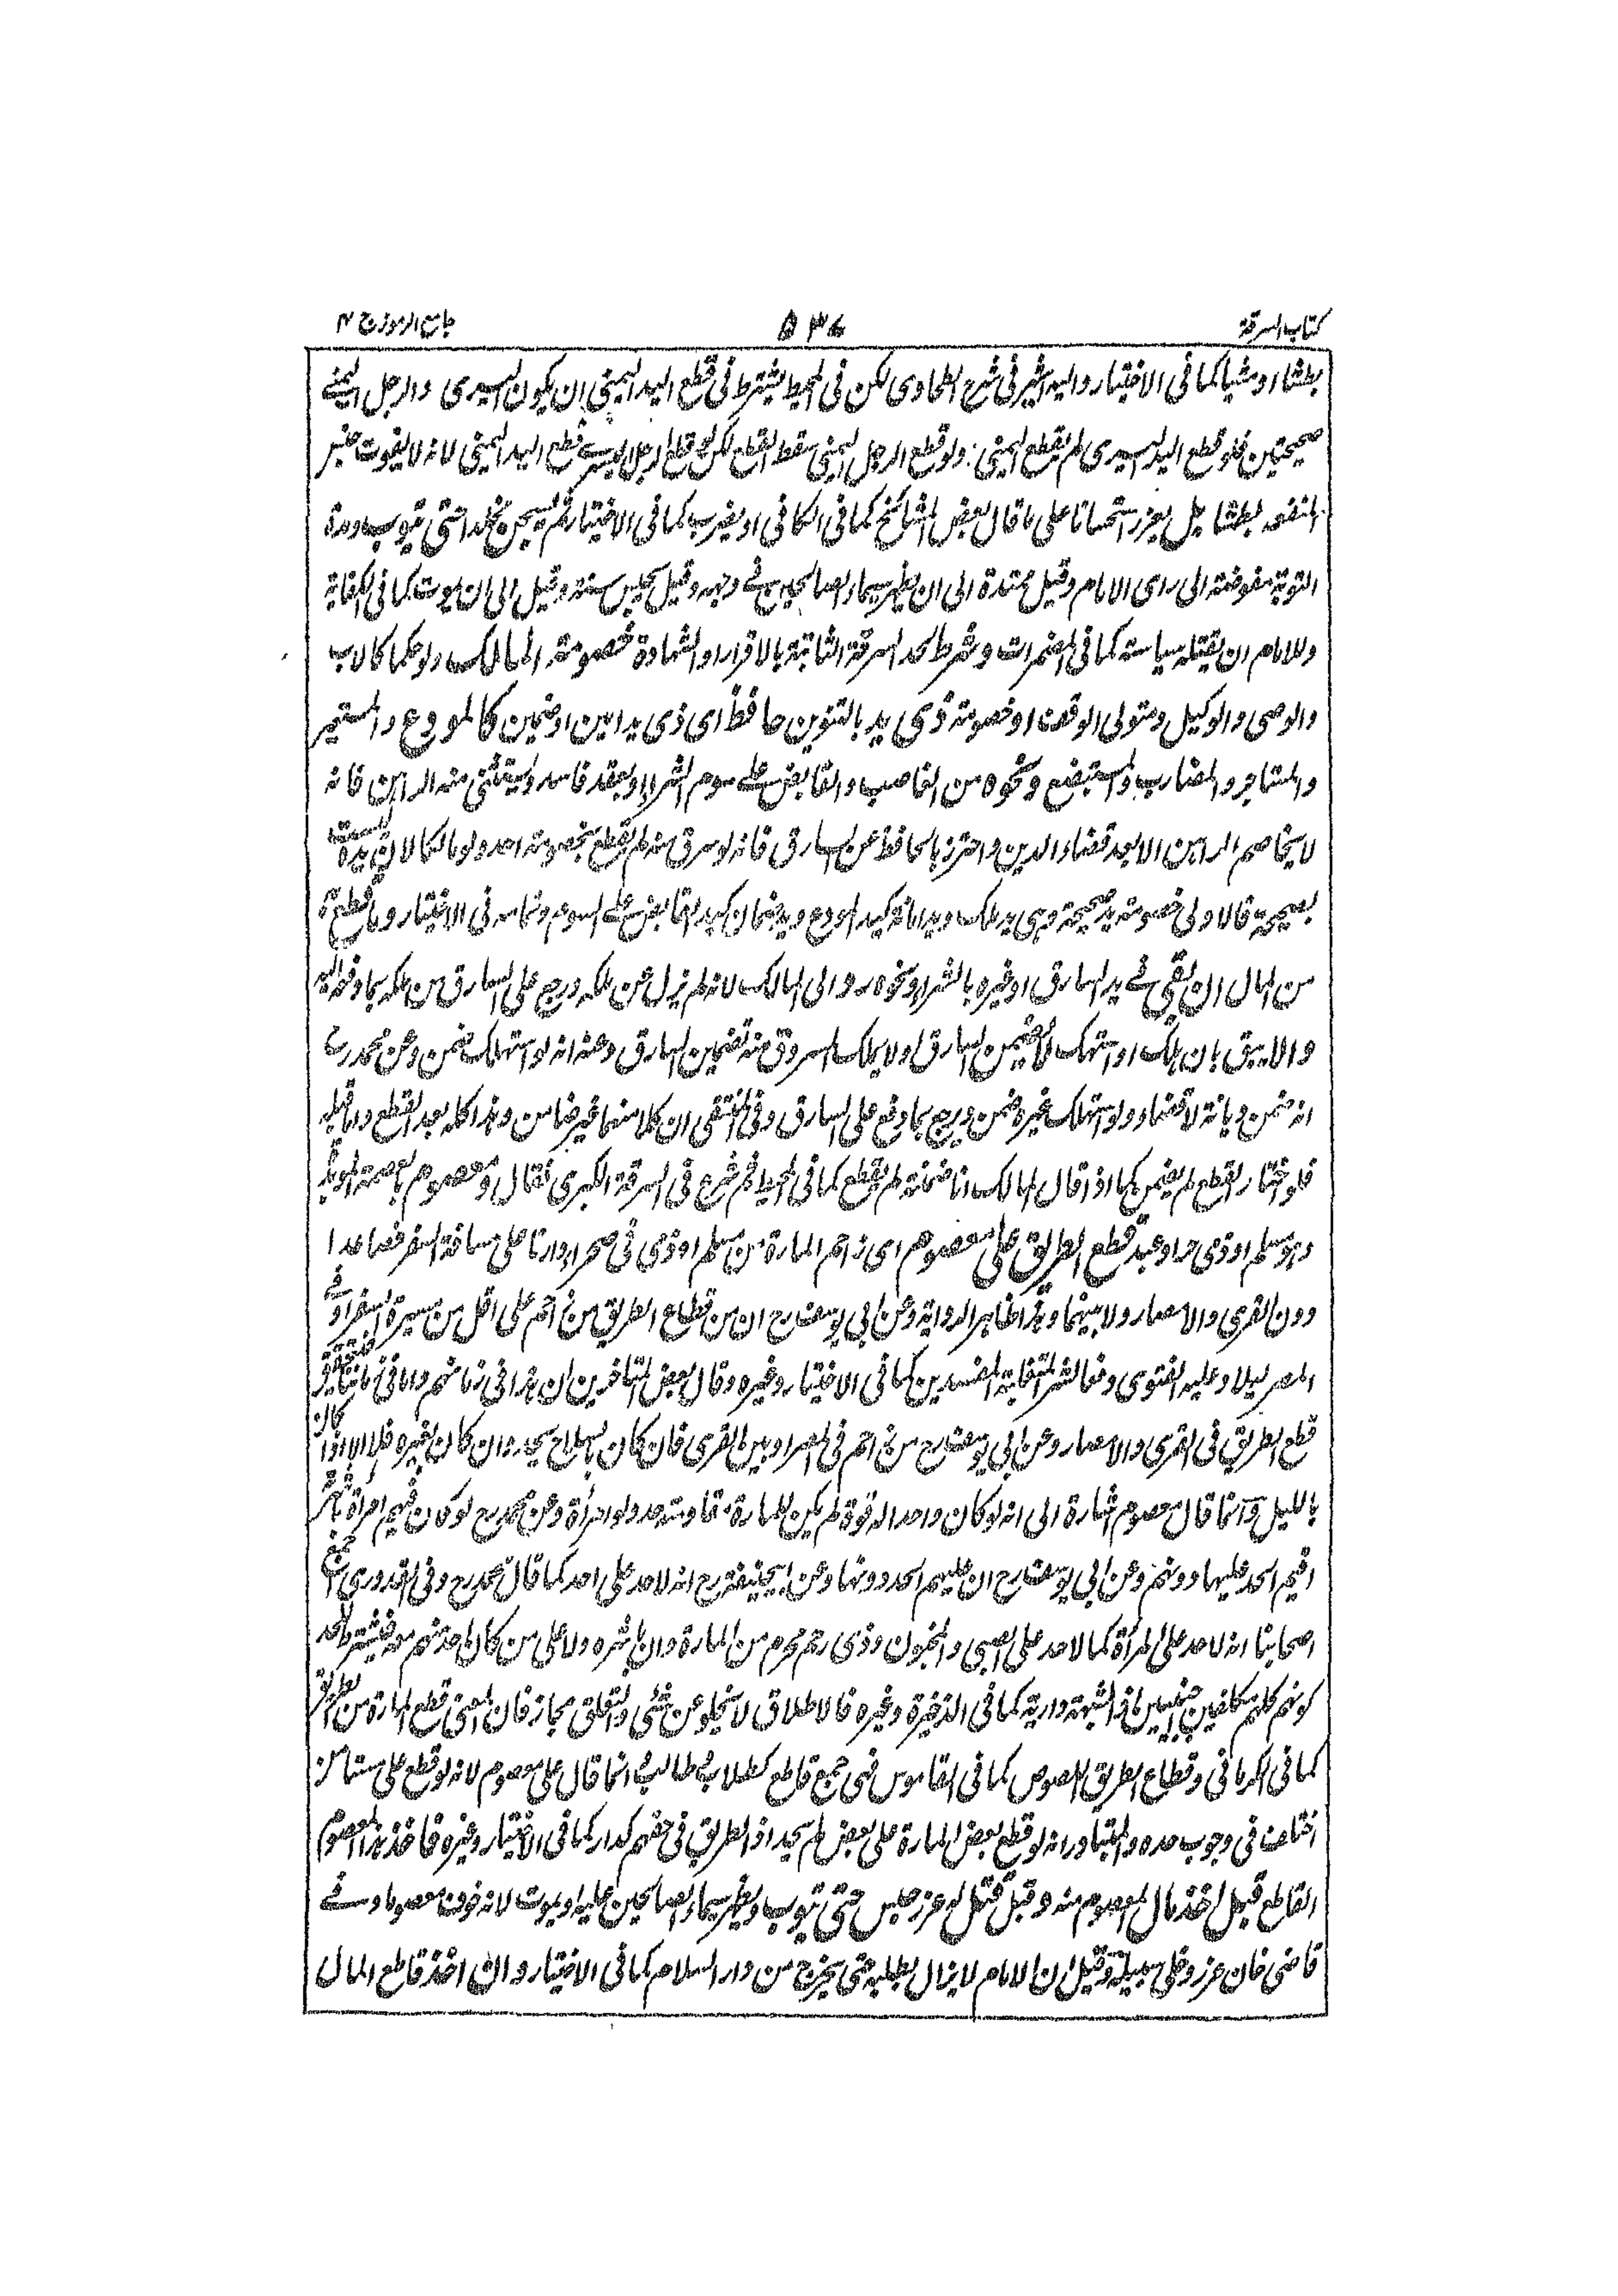 كتاب السرقة
۵۳۷
جامع الرموز ج ۲
بطشا او مشيا كما فى الاختيار واليه اشير فى شرح الطحاوى لكن فى المحيط يشترط فى قطع اليد اليمنى ان يكون اليسرى والرجل اليمنى
صحيحتين فلو قطع اليد اليسرى لم يقطع اليمنى ولو قطع الرجل اليمنى سقط القطع لكن لو قطع الرجل اليسرى قطع اليد اليمنى لانه لا يفوت جنس
المنفعة بطشا بل يعزر استحسانا على ما قال بعض المشائخ كما فى الكافى او يضرب كما فى الاختيار ثم يسجن مخلدا حتى يتوب ومدة
التوبة مفوضة الى راى الامام وقيل ممتدة الى ان يظهر سيما الصالحين فى وجهه وقيل يحبس سنة وقيل الى ان يموت كما فى الكفاية
وللامام ان يقتله سياسة كما فى المضمرات وشرط لحد السرقة الثابتة بالاقرار او الشهادة خصومة المالك ولو حكما كالاب
والوصى والوكيل ومتولى الوقف او خصومة ذى يد بالتنوين حافظ اى ذى يد امين او ضمين كالمودع والمستعير
والمستاجر والمضارب والمستبضع ونحوه من الغاصب والقابض على سوم الشراء او بعقد فاسد ويستثنى منه الراهن فانه
لا يخاصم الراهن الا بعد قضاء الدين واحترز بالحافظ عن السارق فانه لو سرق منه لم يقطع بخصومة احد ولو مالكا لان يده ليست
بصحيحة فالاولى خصومة يد صحيحة وهى يد ملك ويد امانة كيد المودع ويد ضمان كيد القابض على السوم وتمامه فى الاختيار وما قطع به
من المال ان بقى فى يد السارق او غيره بالشراء ونحوه رد الى المالك لانه لم يزل عن ملكه ورجع على السارق من ملكه بما دفع اليه
والا يبق بان هلك او استهلك لا يضمن السارق ولا يملك المسروق منه تضمين السارق وعنه انه لو استهلك ضمن وعن محمد رح
انه ضمن ديانة لا قضاء ولو استهلك غيره ضمن ورجع بما دفع على السارق وفى المنتقى ان كلا منهما غير ضامن وهذا كله بعد القطع واما قبله
فلو اختار القطع لم يضمن كما اذا قال المالك انا ضمانته لم يقطع كما فى المحيط ثم شرع فى السرقة الكبرى فقال ومعصوم بالعصمة المؤبدة
وهو مسلم او ذمى حر او عبد قطع الطريق على معصوم اى زاحم المارة من مسلم او ذمى فى صحراء دارنا على مسافة السفر فصاعدا
دون القرى والامصار ولا بينهما وهذا ظاهر الرواية وعن ابى يوسف رح ان من قطاع الطريق من زاحم على اقل من مسيرة السفر او فى
المصر ليلا وعليه الفتوى دفعا لشر المتغلبة المفسدين كما فى الاختيار وغيره وقال بعض المتاخرين ان هذا فى زمانهم واما فى زماننا فيتحقق
قطع الطريق فى القرى والامصار وعن ابى يوسف رح من زاحم فى المصر او بين القرى فان كان بسلاح يحد وان كان بغيره فلا الا اذا كان
بالليل وانما قال معصوم اشارة الى انه لو كان واحدا له قوة لم يكن للمارة مقاومته حد ولو امرأة وعن محمد رح لو كان فيهم امرأة باشرت
اقيم الحد عليها دونهم وعن ابى يوسف رح ان عليهم الحد دونها وعن ابيحنيفة رح انه لا حد على احد كما قال محمد رح وفى القدورى اجمع
اصحابنا انه لا حد على المرأة كما لا حد على الصبى والمجنون وذى رحم محرم من المارة وان باشره ولا على من كان احد منهم معه فيشترط للحد
كونهم كلهم مكلفين اجنبيين اذ الشبهة دارية كما فى الذخيرة وغيره فالاطلاق لا يخلو عن شئى والتعلق مجاز فان المعنى قطع المارة من الطريق
كما فى الكرمانى وقطاع الطريق اللصوص كما فى القاموس فهى جمع قاطع كطلاب طالب انما قال على معصوم لانه لو قطع على مستامن
اختلف فى وجوب حده والمتبادر انه لو قطع بعض المارة على بعض لم يحد اذ الطريق فى حقهم كدار كما فى الاختيار وغيره فاخذ هذا المعصوم
القاطع قبل اخذ مال المعصوم منه وقبل قتل له عزر حبس حتى يتوب ويظهر سيما الصالحين عليه او يموت لانه خوف معصوما وفى
قاضى خان عزر وخلى سبيله وقيل ان الامام لا يزال يطلبه حتى يخرج من دار السلام كما فى الاختيار وان اخذ قاطع المال